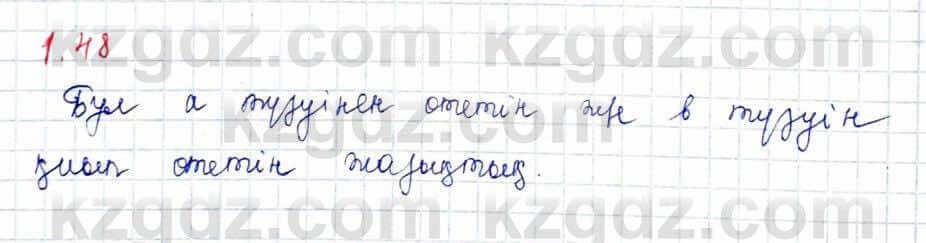 1.48
Бұл а түзуінен өтетін және в түзуін
қиып өтетін жазықтық.
kzgdz.com kzgdz.com
kzgdz.com
kzgdz.com kzgdz.com